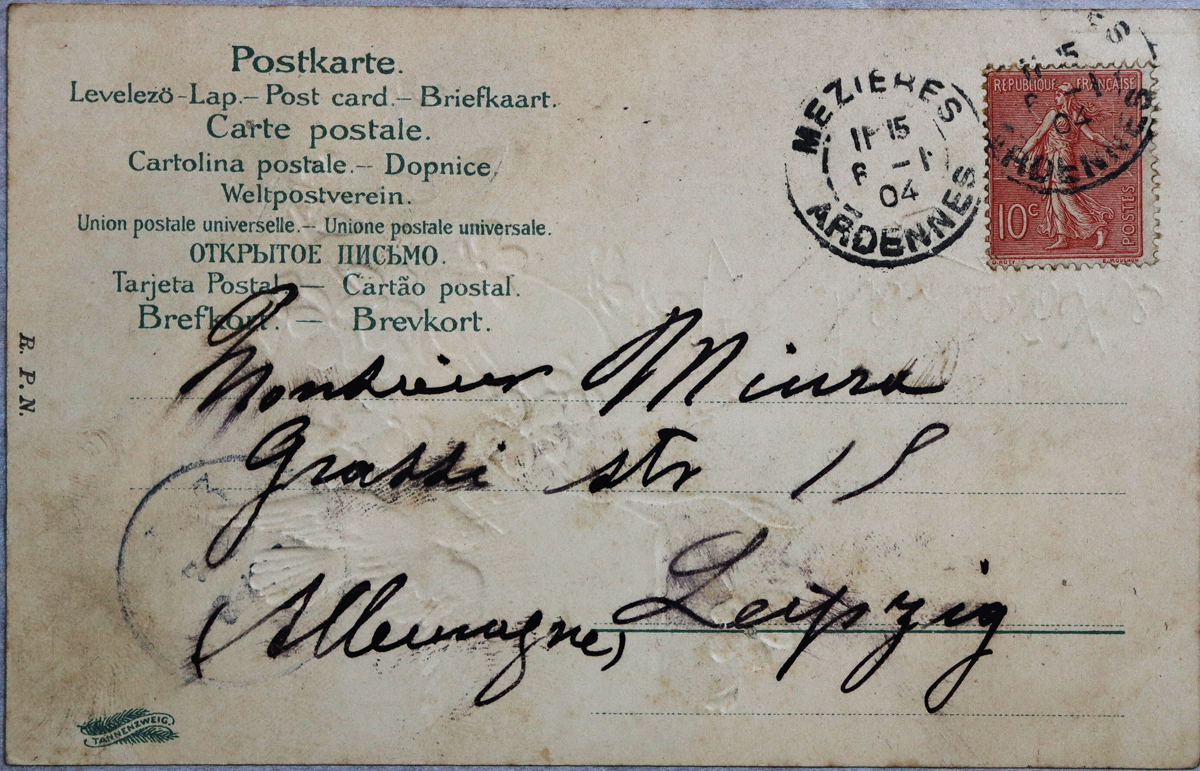 Postkarte.
Levelezö-Lap.– Post card.– Briefkaart.
Carte postale.
Cartolina postale.– Dopnice
Weltpostverein.
Union postale universelle.– Unione postale universale.
ОТКРЫТОЕ ПИСЬМО.
Tarjeta Postal — Cartão postal.
Brefkort. — Brevkort.
R. P. N.
MEZIERES
11 15
04
ARDENNES
15
REPUBLIQUE FRANÇAISE
04
ARDENNES
10c
POSTES
Monsieur Miura
Grassi str 15
Leipzig
(Allemagne)
TANNENZWEIG.